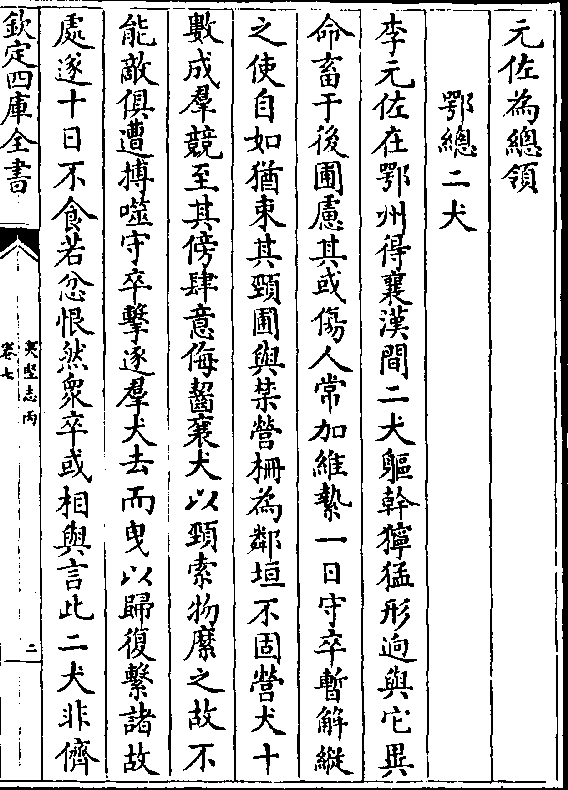 元佐為總領
鄂總二犬
李元佐在鄂州得襄漢間二犬軀幹獰猛形逈與它異
命畜于後圃慮其或傷人常加維縶一日守卒暫解縱
之使自如猶束其頸圃與某營柵為鄰垣不固營犬十
數成羣競至其傍肆意侮齧襄犬以頸索物縻之故不
能敵俱遭搏噬守卒擊逐羣犬去而曳以歸復繫諸故
處遂十日不食若忿恨然衆卒或相與言此二犬非儕
欽定四庫全書
夷堅志丙
卷七
二